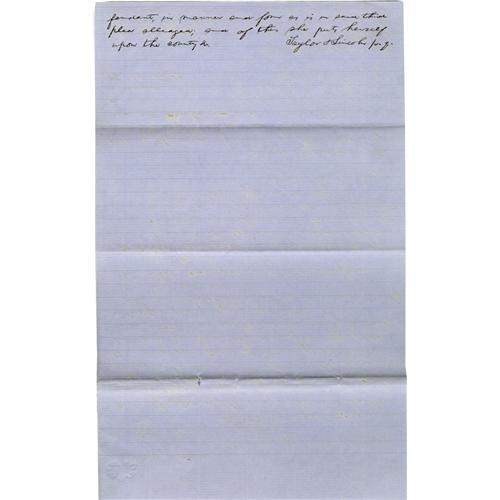 fendant, in manner and form as is in said third
plea alleaged; and of this she puts herself
upon the country &c
Taylor & Lincoln p.q.